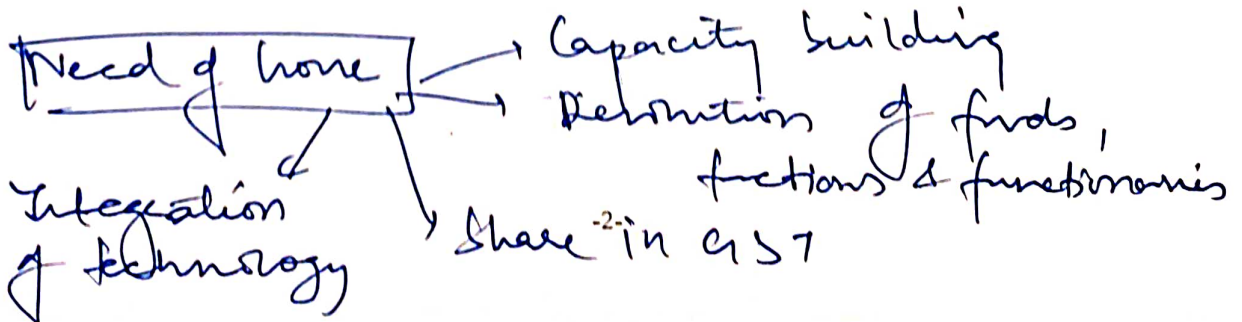 Need of hour
Capacity building
Devolution of funds,
functions & functionaries
Integration
of technology
Share in GST
-2-